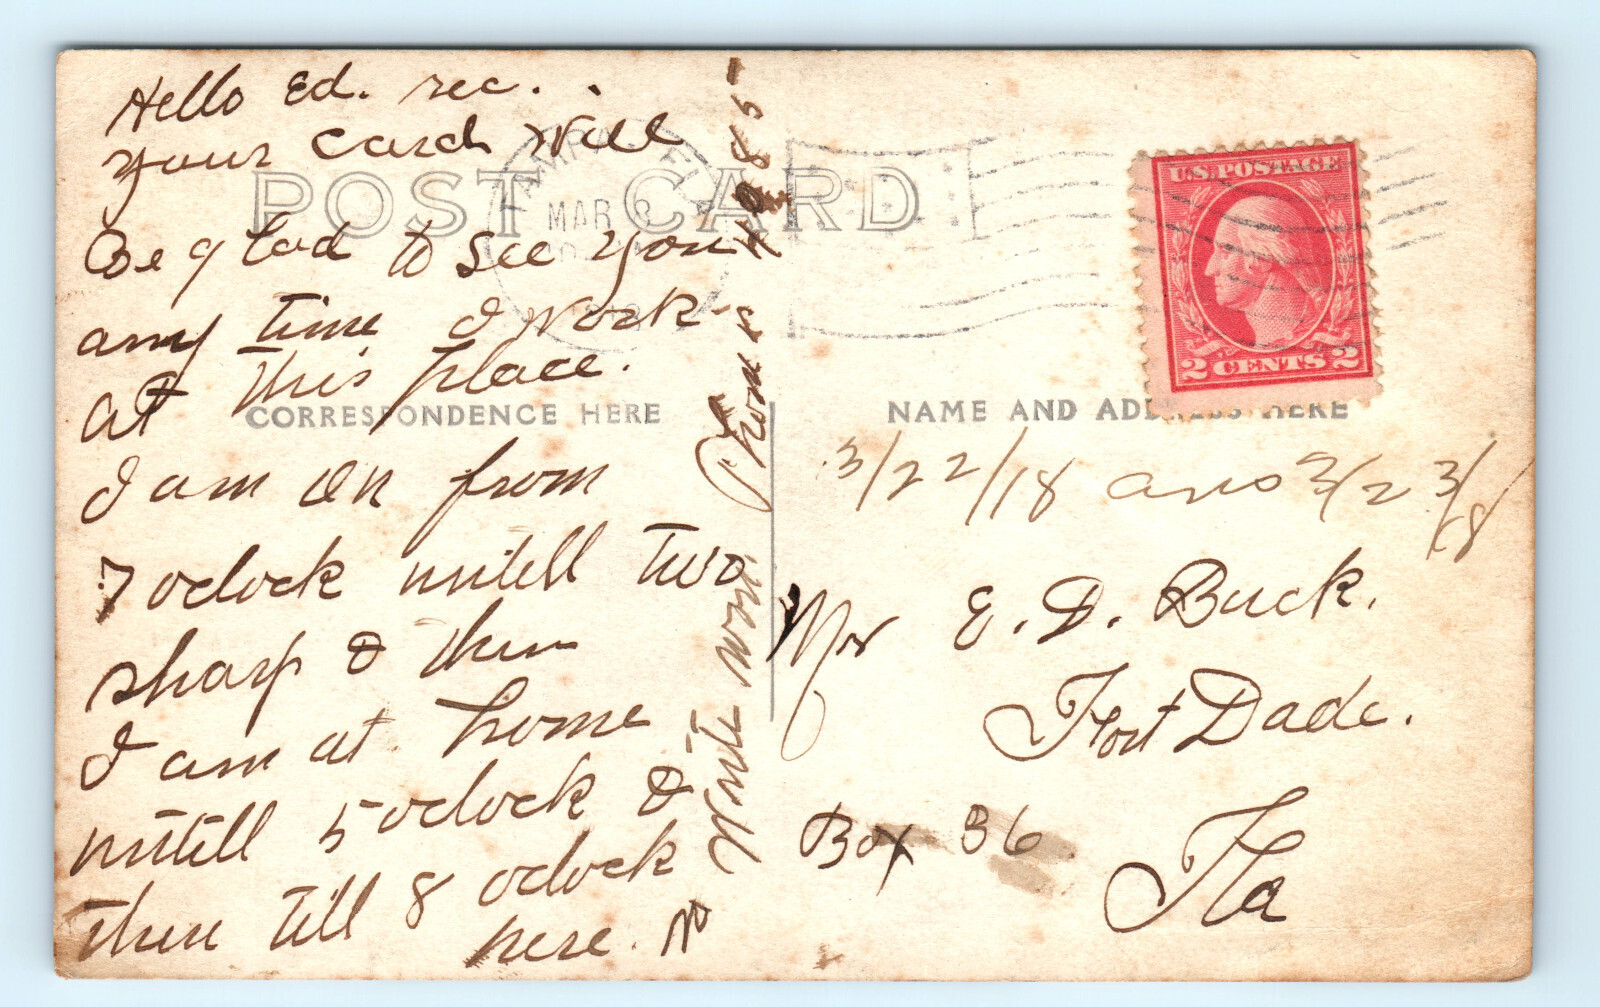 Hello Ed. rec. .
your card Will
Be glad to see you
any time I work
at this place.
I am on from
7 oclock untell two
sharp & then
I am at home
untill 5 oclock &
then till 8 oclock
here. N
Write won. Phone
985
POST CARD
TAMPA FLA
MAR
CORRESPONDENCE HERE
U.S. POSTAGE
2 CENTS 2
NAME AND ADDRESS HERE
3/22/18 ans 3/23/18
Mr E. D. Buck.
Fort Dade.
Box 36
Fla